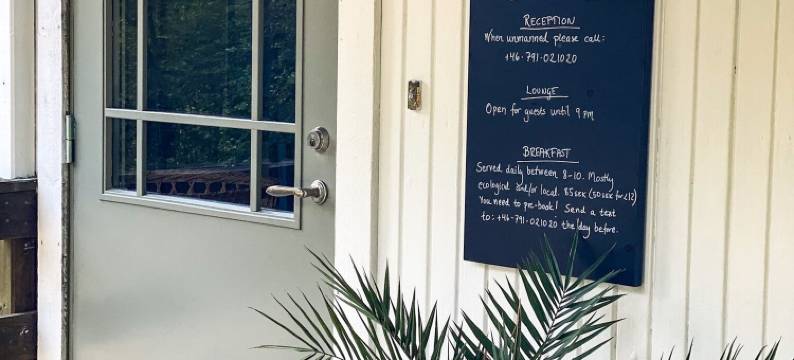 RECEPTION
When unmanned please call:
+46-791-021020
LOUNGE
Open for guests until 9 pm
BREAKFAST
Served daily between 8-10. Mostly
ecological and/or local. 85 SEK (50 SEK for <12)
You need to pre-book! Send a text
to: +46-791-021020 the day before.